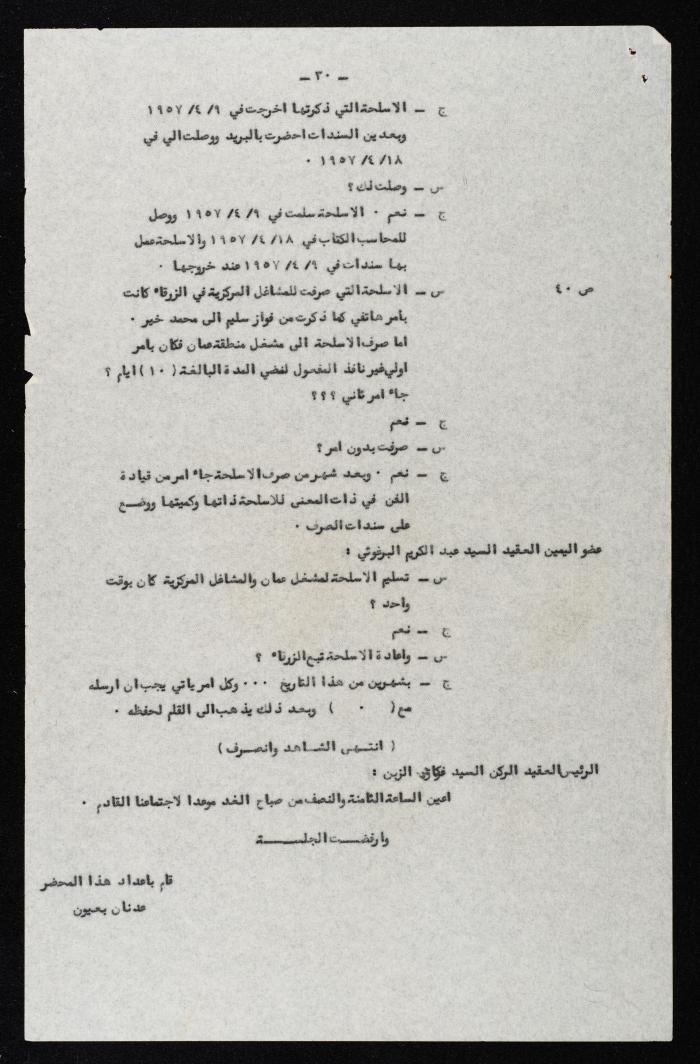 - ٣٠ -
ج - الاسلحة التي ذكرتها اخرجت في ٩/ ٤/ ١٩٥٧
وبعدين السندات احضرت بالبريد ووصلت الي في
١٨/ ٤/ ١٩٥٧ ٠
س - وصلت لك ؟
ج - نعم ٠ الاسلحة سلمت في ٩/ ٤/ ١٩٥٧ ووصل
للمحاسب الكتاب في ١٨/ ٤/ ١٩٥٧ والاسلحة عمل
بها سندات في ٩/ ٤/ ١٩٥٧ عند خروجها ٠
ص ٤٠ س - الاسلحة التي صرفت للمشاغل المركزية في الزرقاء كانت
بأمر هاتفي كما ذكرت من فواز سليم الى محمد خير ٠
اما صرف الاسلحة الى مشغل منطقة عمان فكان بامر
اولي غير نافذ المفعول لمضي المدة البالغة ( ١٠ ) ايام ؟
جاء امر ثاني ؟؟؟
ج - نعم
س - صرفت بدون امر ؟
ج - نعم ٠ وبعد شهر من صرف الاسلحة جاء امر من قيادة
الفن في ذات المعنى للاسلحة ذاتها وكميتها ووضع
على سندات الصرف ٠
عضو اليمين العقيد السيد عبد الكريم البرغوثي :
س - تسليم الاسلحة لمشغل عمان والمشاغل المركزية كان بوقت
واحد ؟
ج - نعم
س - واعادة الاسلحة تبع الزرقاء ؟
ج - بشهرين من هذا التاريخ ٠٠٠ وكل امر ياتي يجب ان ارسله
مع ( ٠ ) وبعد ذلك يذهب الى القلم لحفظه ٠
( انتهى الشاهد وانصرف )
الرئيس العقيد الركن السيد الزين :
اعين الساعة الثامنة والنصف من صباح الغد موعدا لاجتماعنا القادم ٠
وارفضت الجلسة
قام باعداد هذا المحضر
عدنان بعيون